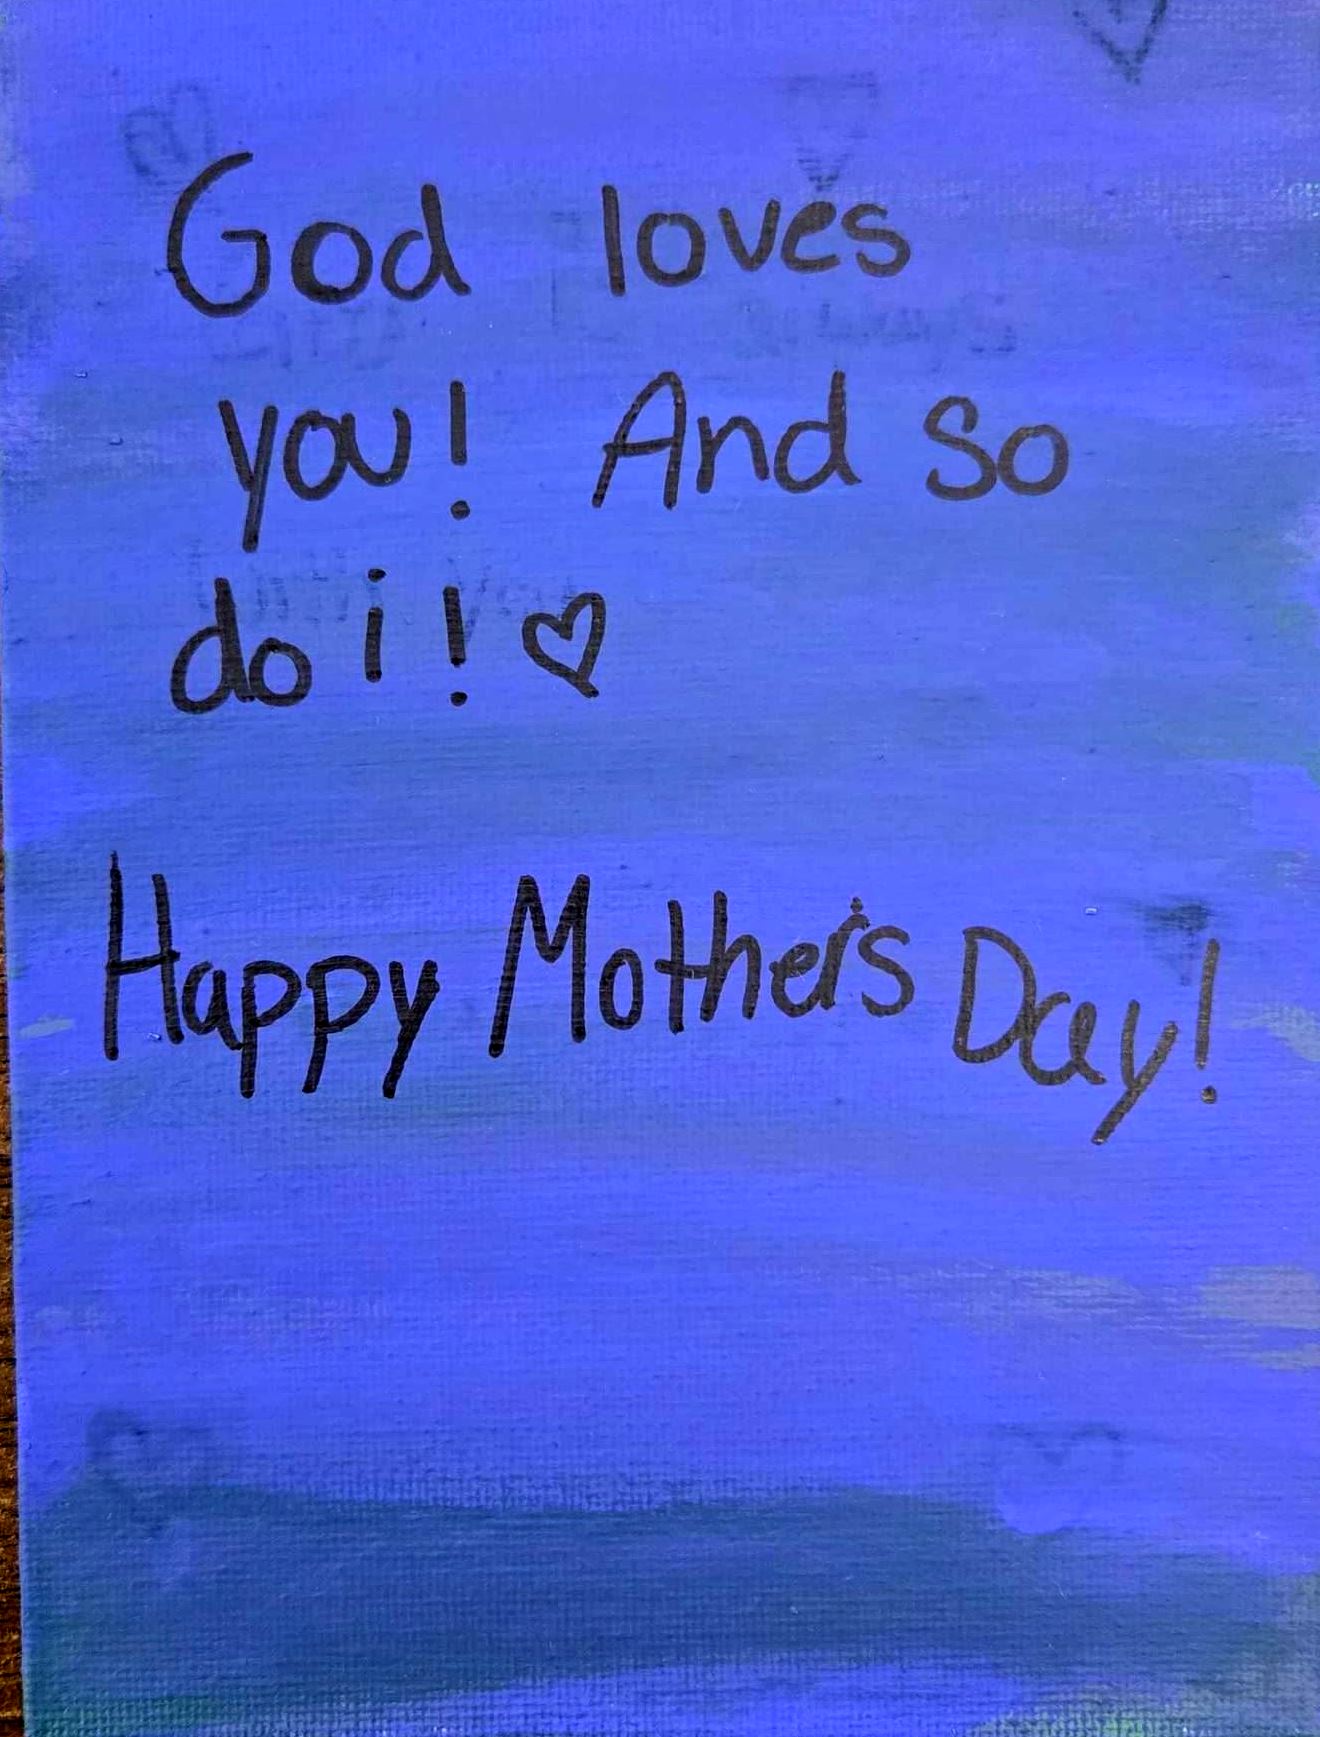 God loves
you! And so
do i! ♡
Happy Mother's Day!